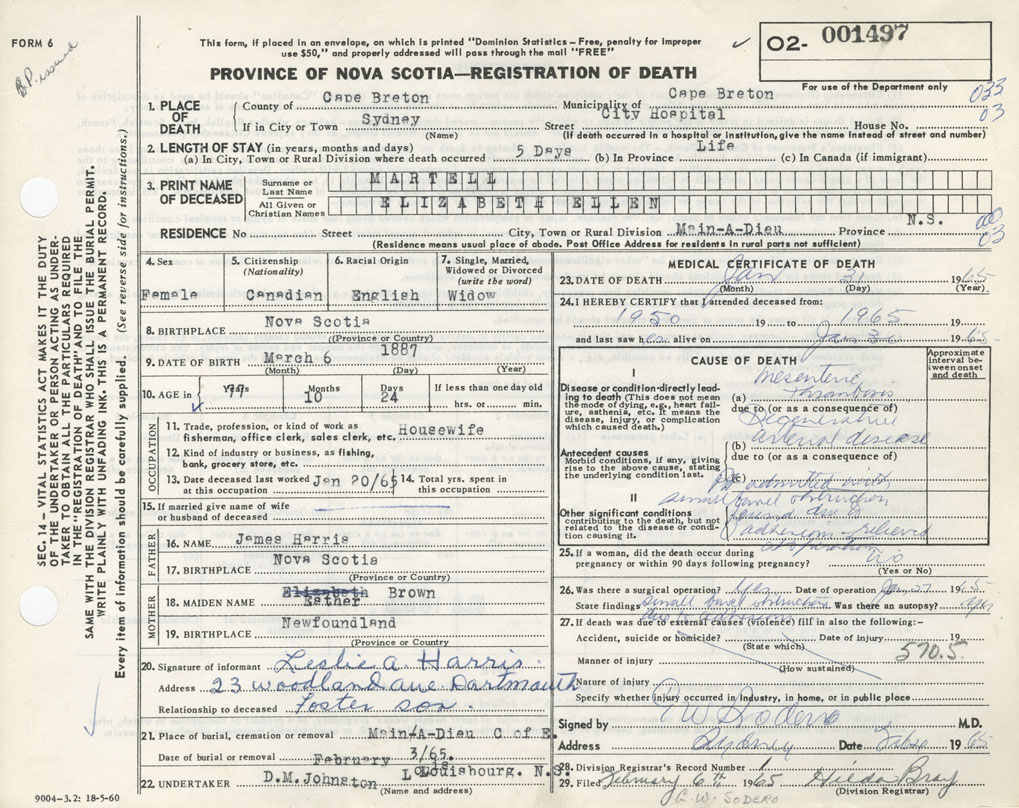 FORM 6
B.P. issued
This form, if placed in an envelope, on which is printed "Dominion Statistics – Free, penalty for improper
use $50," and properly addressed will pass through the mail "FREE"
PROVINCE OF NOVA SCOTIA—REGISTRATION OF DEATH
✓ 02- 001497
For use of the Department only
033
03
1. PLACE OF DEATH
County of Cape Breton Municipality of Cape Breton
If in City or Town Sydney Street City Hospital House No.
(Name) (If death occurred in a hospital or institution, give the name instead of street and number)
2. LENGTH OF STAY (in years, months and days)
(a) In City, Town or Rural Division where death occurred 5 Days (b) In Province Life (c) In Canada (if immigrant)
3. PRINT NAME OF DECEASED
Surname or Last Name MARTELL
All Given or Christian Names ELIZABETH ELLEN
RESIDENCE No Street City, Town or Rural Division Main-A-Dieu Province N.S.
(Residence means usual place of abode. Post Office Address for residents in rural parts not sufficient)
00
03
4. Sex
Female
5. Citizenship (Nationality)
Canadian
6. Racial Origin
English
7. Single, Married, Widowed or Divorced (write the word)
Widow
8. BIRTHPLACE Nova Scotia
(Province or Country)
9. DATE OF BIRTH March 6 1887
(Month) (Day) (Year)
10. AGE in Months 10 Days 24 If less than one day old hrs. or min.
OCCUPATION
11. Trade, profession, or kind of work as fisherman, office clerk, sales clerk, etc. Housewife
12. Kind of industry or business, as fishing, bank, grocery store, etc.
13. Date deceased last worked at this occupation Jan 20/65
14. Total yrs. spent in this occupation
15. If married give name of wife or husband of deceased
FATHER
16. NAME James Harris
17. BIRTHPLACE Nova Scotia
(Province or Country)
MOTHER
18. MAIDEN NAME Elizabeth Esther Brown
19. BIRTHPLACE Newfoundland
(Province or Country)
20. Signature of informant Leslie A Harris
Address 23 woodland ave Dartmouth
Relationship to deceased foster son.
21. Place of burial, cremation or removal Main-A-Dieu C of E.
Date of burial or removal February 3/65.
22. UNDERTAKER D.M. Johnston Louisbourg. N.S.
(Name and address)
9004-3.2: 18-5-60
MEDICAL CERTIFICATE OF DEATH
23. DATE OF DEATH Jan 31 1965
(Month) (Day) (Year)
24. I HEREBY CERTIFY that I attended deceased from:
1950 19 to 1965 19
and last saw her alive on Jan 30 1965
CAUSE OF DEATH
Approximate interval between onset and death
I
Disease or condition directly leading to death (This does not mean the mode of dying, e.g., heart failure, asthenia, etc. It means the disease, injury, or complication which caused death.)
(a) Mesenteric Thrombosis
due to (or as a consequence of)
Degenerative
(b) arterial disease
due to (or as a consequence of)
Antecedent causes
Morbid conditions, if any, giving rise to the above cause, stating the underlying condition last.
(c) admitted with
II
Other significant conditions contributing to the death, but not related to the disease or condition causing it.
small bowel obstruction
due to
adhesions relieved
operation
25. If a woman, did the death occur during pregnancy or within 90 days following pregnancy? no
(Yes or No)
26. Was there a surgical operation? Yes Date of operation Jan 27 1965
State findings Small bowel obstruction Was there an autopsy?
due to adhesions
27. If death was due to external causes (violence) fill in also the following:-
Accident, suicide or homicide? Date of injury 19
(State which)
570.5
Manner of injury
(How sustained)
Nature of injury
Specify whether injury occurred in industry, in home, or in public place
Signed by GW Sodero M.D.
Address Sydney Date 1965
28. Division Registrar's Record Number 1
29. Filed February 6th 1965 Hilda Bray
(Division Registrar)
G.W. SODERO
SEC. 14 – VITAL STATISTICS ACT MAKES IT THE DUTY
OF THE UNDERTAKER OR PERSON ACTING AS UNDER-
TAKER TO OBTAIN ALL THE PARTICULARS REQUIRED
IN THE "REGISTRATION OF DEATH" AND TO FILE THE
SAME WITH THE DIVISION REGISTRAR WHO SHALL ISSUE THE BURIAL PERMIT.
WRITE PLAINLY WITH UNFADING INK. THIS IS A PERMANENT RECORD.
Every item of information should be carefully supplied. (See reverse side for instructions.)